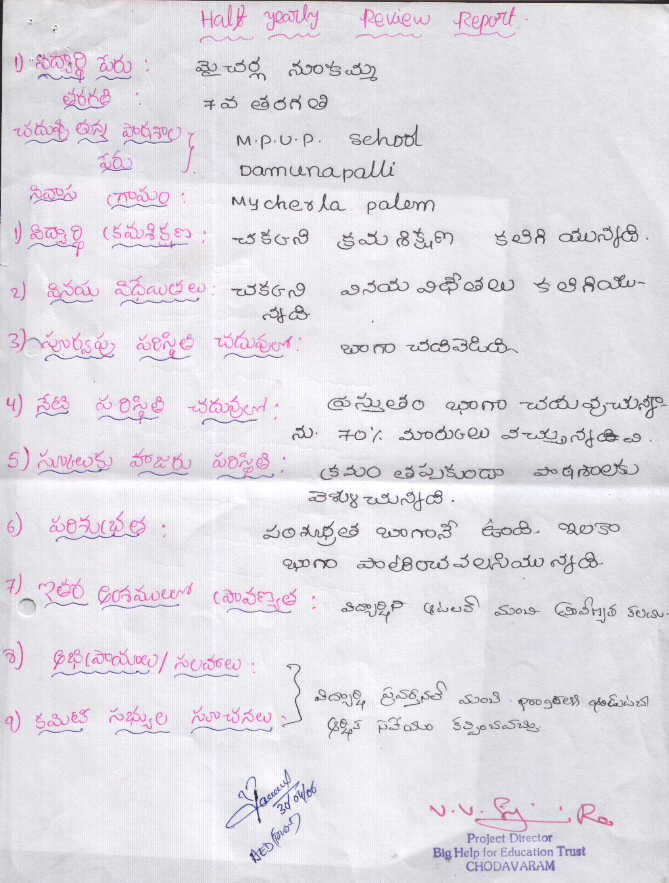 Half yearly Review Report.
1) విద్యార్థి పేరు : మైచర్ల నూకమ్మ
తరగతి : 7వ తరగతి
చదువుచున్న పాఠశాల M.P.U.P. School
పేరు Damunapalli
నివాస గ్రామం : Mycherla palem
1) విద్యార్థి క్రమశిక్షణ : చక్కని క్రమశిక్షణ కలిగి యున్నది.
2) వినయ విధేయతలు : చక్కని వినయ విధేతలు కలిగియు-
న్నది
3) పూర్వపు పరిస్థితి చదువులో : బాగా చదివెడిది
4) నేటి పరిస్థితి చదువులో : ప్రస్తుతం బాగా
ను. 70% మార్కులు
5) స్కూలుకు హాజరు పరిస్థితి : క్రమం తప్పకుండా పాఠశాలకు
వెళ్ళుచున్నది.
6) పరిశుభ్రత : పరిశుభ్రత బాగానే ఉంది. ఇంకా
బాగా పాటించవలసియున్నది
7) ఇతర అంశములలో ప్రావణ్యత : విద్యార్థిని ఆటలలో మంచి ప్రావీణ్యత కలదు.
8) అభిప్రాయాలు/సలహాలు :
విద్యార్థి ప్రవర్తనలో మంచి
9) కమిటీ సభ్యుల సూచనలు :
ఆర్థిక సహాయం
30/04/06
V.V.
Project Director
Big Help for Education Trust
CHODAVARAM